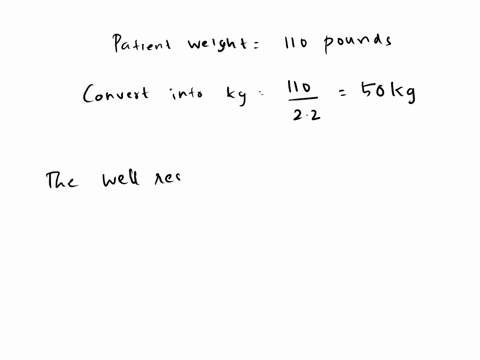 Patient weight = 110 pounds
Convert into kg : 110 / 2.2 = 50kg
The well res